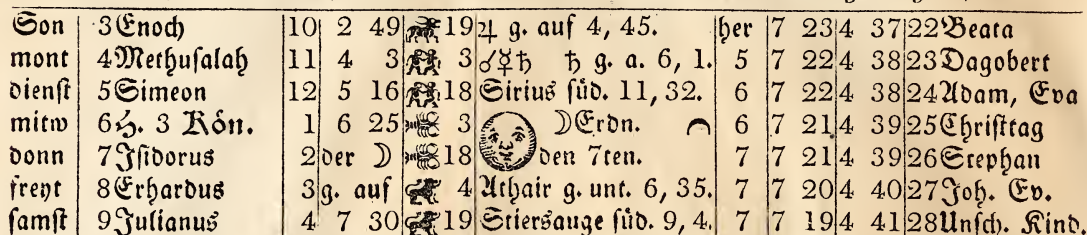 Son 3 Enoch 10 2 49 19 ♃ g. auf 4, 45. her 7 23 4 37 22 Beata
mont 4 Methusalah 11 4 3 3 ☌☿♄ ♄ g. a. 6, 1. 5 7 22 4 38 23 Dagobert
dienst 5 Simeon 12 5 16 18 Sirius süd. 11, 32. 6 7 22 4 38 24 Adam, Eva
mitw 6 H. 3 Kön. 1 6 25 3 ☽Erdn. 6 7 21 4 39 25 Christtag
donn 7 Isidorus 2 der ☽ 18 den 7ten. 7 7 21 4 39 26 Stephan
freyt 8 Erhardus 3 g. auf 4 Athair g. unt. 6, 35. 7 7 20 4 40 27 Joh. Ev.
samst 9 Julianus 4 7 30 19 Stiersauge süd. 9, 4. 7 7 19 4 41 28 Unsch. Kind.